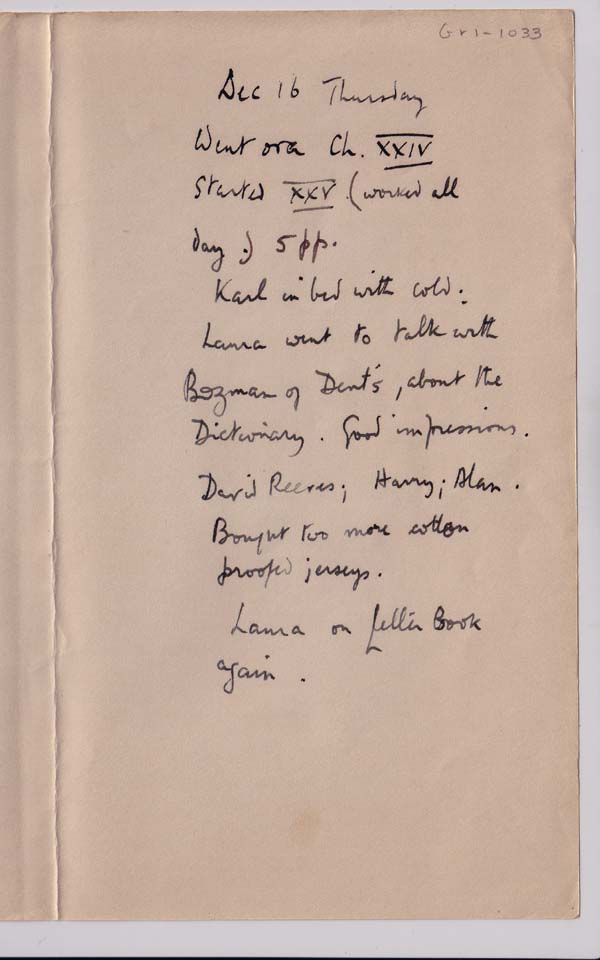 Gr1-1033
Dec 16 Thursday
Went over Ch. XXIV
Started XXV (worked all
day.) 5 pp.
Karl in bed with cold.
Laura went to talk with
Bozman of Dent's, about the
Dictionary. Good impressions.
David Reeves; Harry; Alan.
Bought two more cotton
proofed jerseys.
Laura on Letter Book
again.